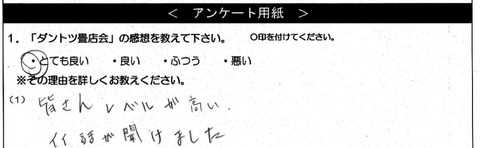 ＜ アンケート用紙 ＞
１．「ダントツ畳店会」の感想を教えて下さい。　〇印を付けてください。
・とても良い　・良い　・ふつう　・悪い
※その理由を詳しくお教えください。
(1) 皆さんレベルが高い．
イイ話が聞けました